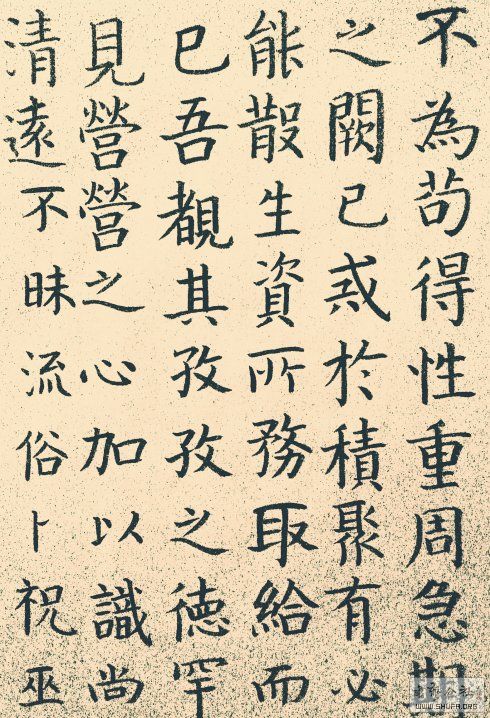 不為苟得性重周急期
之闕己惑於積聚有必
能散生資所務取給而
已吾觀其孜孜之德罕
見營營之心加以識尚
清遠不昧流俗卜祝巫
WWW.SHUFA.ORG